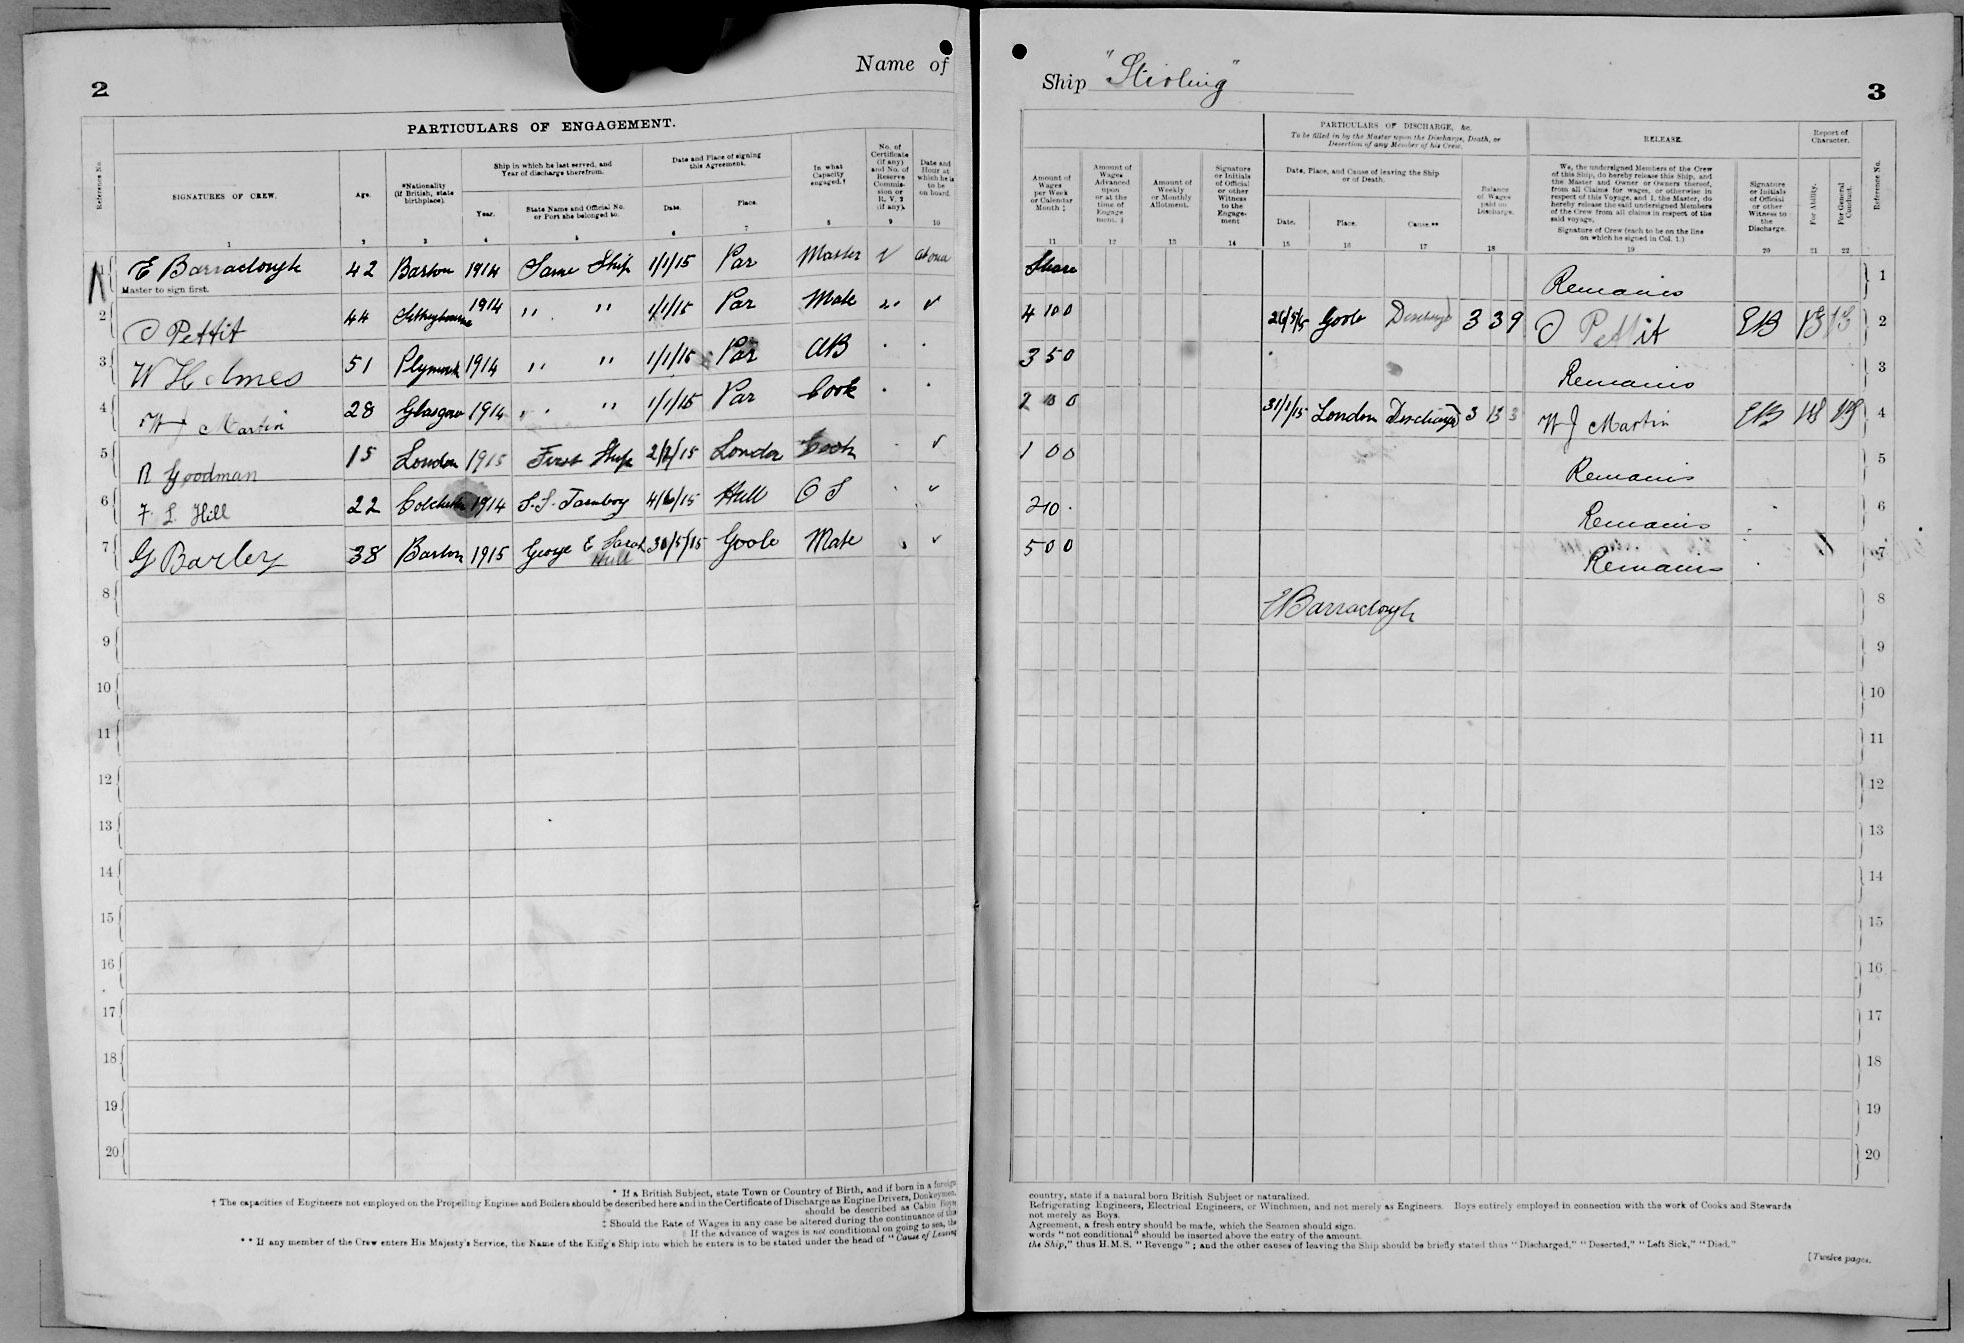 2
Name of
PARTICULARS OF ENGAGEMENT.
Reference No.
SIGNATURES OF CREW.
Age.
*Nationality (if British, state birthplace).
Ship in which he last served, and Year of discharge therefrom.
Year.
State Name and Official No. or Port she belonged to.
Date and Place of signing this Agreement.
Date.
Place.
In what Capacity engaged.†
No. of Certificate (if any) and No. of Reserve Commission or R. V. 2 (if any).
Date and Hour at which he is to be on board.
1 2 3 4 5 6 7 8 9 10
1 E Barraclough 42 Barton 1914 Same Ship 1/1/15 Par Master
Master to sign first.
2 O Pettit 44 1914 " " 1/1/15 Par Mate
3 W Holmes 51 Plymouth 1914 " " 1/1/15 Par AB
4 W J Martin 28 Glasgow 1914 " " 1/1/15 Par Cook
5 Goodman 15 London 1915 First Ship 2/2/15 London Cook
6 F. L Hill 22 Colchester 1914 S.S. 4/6/15 Hull O S
7 G Barley 38 Barton 1915 George E Sarah Hull 30/5/15 Goole Mate
8
9
10
11
12
13
14
15
16
17
18
19
20
* If a British Subject, state Town or Country of Birth, and if born in a foreign
† The capacities of Engineers not employed on the Propelling Engines and Boilers should be described here and in the Certificate of Discharge as Engine Drivers, Donkeymen,
should be described as Cabin Boys
‡ Should the Rate of Wages in any case be altered during the continuance of this
If the advance of wages is not conditional on going to sea, the
** If any member of the Crew enters His Majesty's Service, the Name of the King's Ship into which he enters is to be stated under the head of "Cause of Leaving
Ship "Stirling"
3
PARTICULARS OF DISCHARGE, &c.
To be filled in by the Master upon the Discharge, Death, or Desertion of any Member of his Crew.
RELEASE.
Report of Character.
Amount of Wages per Week or Calendar Month ‡
Amount of Wages Advanced upon or at the time of Engagement. §
Amount of Weekly or Monthly Allotment.
Signature or Initials of Official or other Witness to the Engagement
Date, Place, and Cause of leaving the Ship or of Death.
Date.
Place.
Cause.**
Balance of Wages paid on Discharge.
We, the undersigned Members of the Crew of this Ship, do hereby release this Ship, and the Master and Owner or Owners thereof, from all Claims for wages, or otherwise in respect of this Voyage, and I, the Master, do hereby release the said undersigned Members of the Crew from all claims in respect of the said voyage.
Signature of Crew (each to be on the line on which he signed in Col. 1.)
Signature or Initials of Official or other Witness to the Discharge.
For Ability.
For General Conduct.
Reference No.
11 12 13 14 15 16 17 18 19 20 21 22
Share Remains 1
4 10 0 26/5/15 Goole Discharged 3 3 9 O Pettit EB 2
3 5 0 Remains 3
31/1/15 London Discharged 3 13 3 W J Martin EB 4
1 0 0 Remains 5
Remains 6
5 0 0 Remains 7
E Barraclough 8
9
10
11
12
13
14
15
16
17
18
19
20
country, state if a natural born British Subject or naturalized.
Refrigerating Engineers, Electrical Engineers, or Winchmen, and not merely as Engineers. Boys entirely employed in connection with the work of Cooks and Stewards
not merely as Boys.
Agreement, a fresh entry should be made, which the Seamen should sign.
words "not conditional" should be inserted above the entry of the amount.
the Ship," thus H.M.S. "Revenge"; and the other causes of leaving the Ship should be briefly stated thus "Discharged," "Deserted," "Left Sick," "Died."
[Twelve pages.